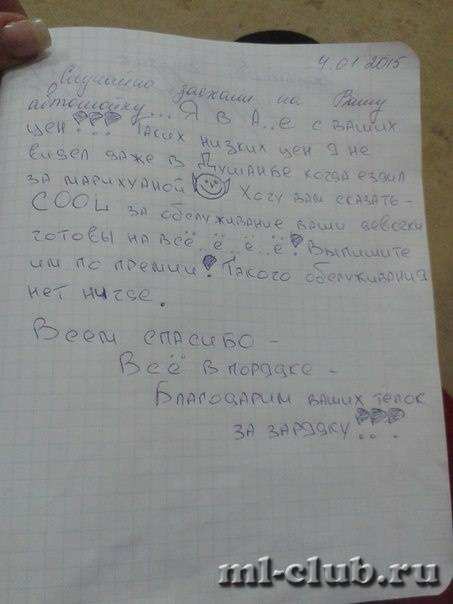 4.01 2015
Случайно заехали на Вашу
автомойку... Я в А..е с ваших
цен!!! Таких низких цен я не
видел даже в Душанбе когда ездил
за марихуаной Хочу вам сказать -
COOL за обслуживание ваши девочки
готовы на всё..ё..ё..ё! Выпишите
им по премии! Такого обслуживания
нет нигде.
Всем спасибо -
Всё в порядке -
Благодарим ваших телок
за зарядку!!!
ml-club.ru